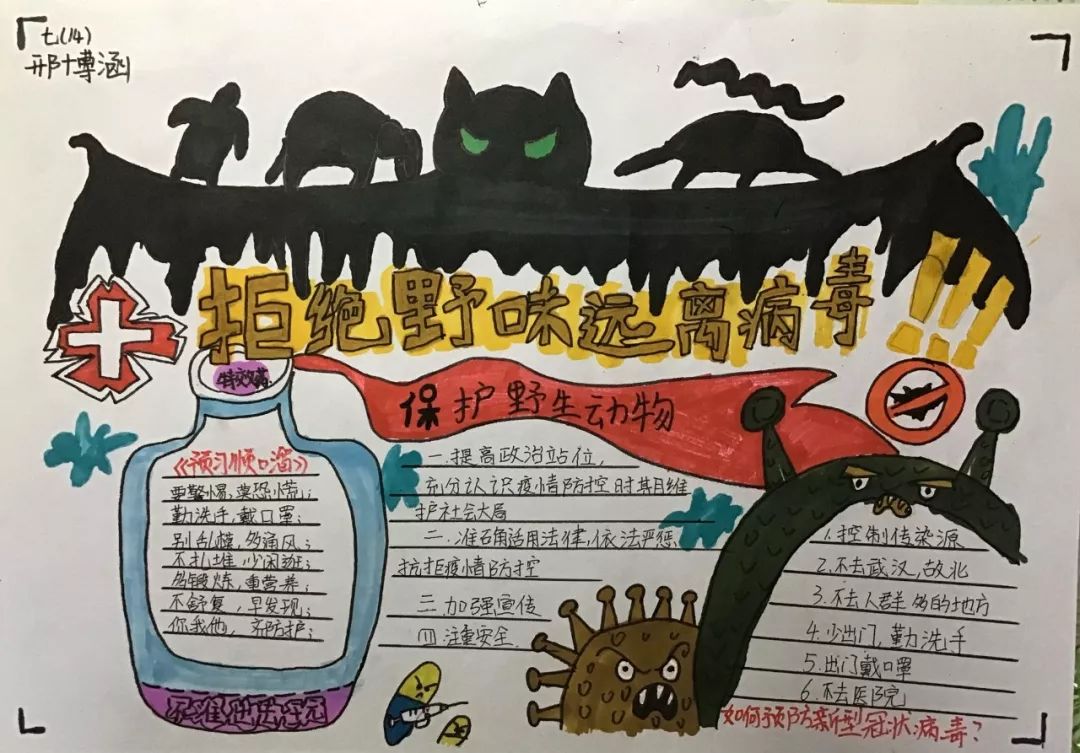 七(14)
邢博涵
拒绝野味远离病毒!!!
特效药
保护野生动物
《预习顺口溜》
要警惕,莫恐慌;
勤洗手,戴口罩;
别乱摸,多通风;
不扎堆,少闲逛;
多锻炼,重营养;
不舒复,早发现;
你我他,齐防护;
一.提高政治站位,
充分认识疫情防控时期维
护社会大局
二.准确适用法律,依法严惩
抗拒疫情防控
三加强宣传
四注重安全.
1.控制传染源
2.不去武汉,故北
3.不去人群多的地方
4.少出门,勤洗手
5.出门戴口罩
6.不去医院
如何预防新型冠状病毒?